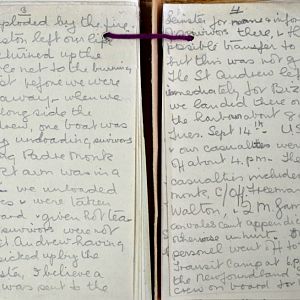 3
ploded by the fire.
ston left our
turned up the
ce not to the burning
st before we were
away - when we
long side the
drew, one boat was
ly unloading, survivors
Padre Monk
et arm was in a
we unloaded
& were taken
oard & given hot tea
survivors were not
Andrew having
picked up by the
ster, I believe a
was sent to the
4
Leinster for names & info
survivors there, & th
possible transfer to
but this was not g
The St Andrew left
immediately for Biz
we landed there o
the harbour about 8
Tues. Sept. 14th
our casualties were
off about 4 p.m. Th
casualties include
Monk, C/Off. Freeman
Walton, 2 m
convalescent append
otherwise uninj
personnel went off to
Transit Camp at 6 p
the Newfoundland
crew on board for